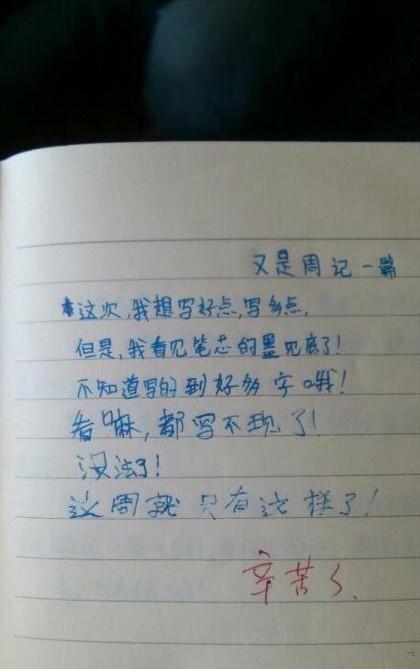 又是周记一篇
这次,我想写好点,写多点,
但是,我看见笔芯的墨见底了!
不知道写的到好多字哦!
看嘛,都写不现了!
没法了!
这周就只有这样了!
辛苦了、